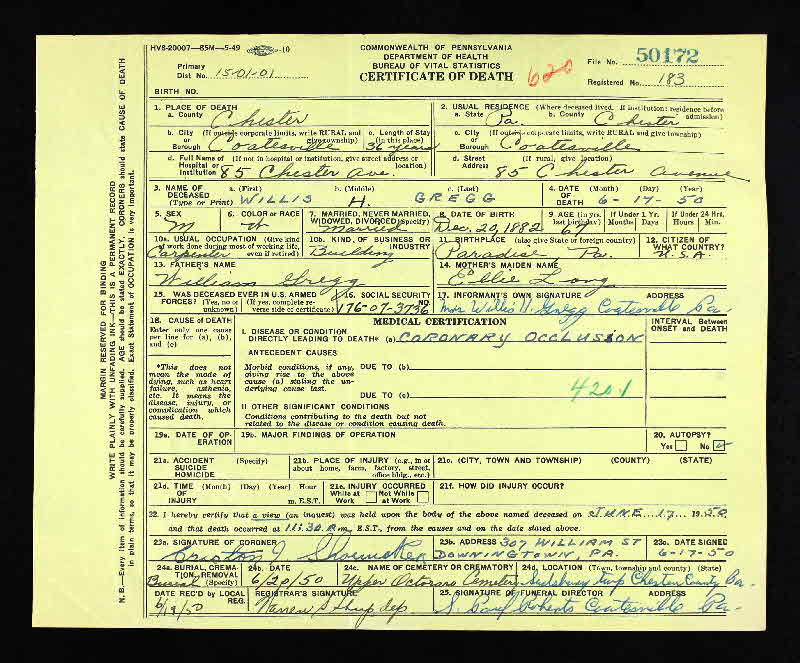 HVS-20007—85M—5-49 -10
COMMONWEALTH OF PENNSYLVANIA
DEPARTMENT OF HEALTH
BUREAU OF VITAL STATISTICS
CERTIFICATE OF DEATH
620
File No. 50172
Primary Dist No. 15-01-01
Registered No. 183
BIRTH NO.
MARGIN RESERVED FOR BINDING
WRITE PLAINLY WITH UNFADING INK—THIS IS A PERMANENT RECORD
N. B.—Every item of information should be carefully supplied. AGE should be stated EXACTLY. CORONERS should state CAUSE OF DEATH
in plain terms, so that it may be properly classified. Exact Statement of OCCUPATION is very important.
1. PLACE OF DEATH
a. County Chester
2. USUAL RESIDENCE (Where deceased lived. If institution: residence before admission)
a. State Pa. b. County Chester
b. City (If outside corporate limits, write RURAL and give township)
or Borough Coatesville
c. Length of Stay (in this place) 36 years
c. City (If outside corporate limits, write RURAL and give township)
or Borough Coatesville
d. Full Name of Hospital or Institution (If not in hospital or institution, give street address or location) 85 Chester Ave.
d. Street Address (If rural, give location) 85 Chester Avenue
3. NAME OF DECEASED (Type or Print) a. (First) b. (Middle) c. (Last)
WILLIS H. GREGG
4. DATE OF DEATH (Month) (Day) (Year) 6-17-50
5. SEX M
6. COLOR OR RACE W
7. MARRIED, NEVER MARRIED, WIDOWED, DIVORCED (specify) Married
8. DATE OF BIRTH Dec. 20, 1882
9. AGE (in yrs. last birthday) 67
If Under 1 Yr. Months Days
If Under 24 Hrs. Hours Min.
10a. USUAL OCCUPATION (Give kind of work done during most of working life, even if retired) Carpenter
10b. KIND OF BUSINESS OR INDUSTRY Building
11. BIRTHPLACE (also give State or foreign country) Paradise Pa.
12. CITIZEN OF WHAT COUNTRY? U.S.A.
13. FATHER'S NAME William Gregg
14. MOTHER'S MAIDEN NAME Long
15. WAS DECEASED EVER IN U.S. ARMED FORCES? (Yes, no or unknown) (If yes, complete reverse side of certificate)
16. SOCIAL SECURITY NO. 176-07-3736
17. INFORMANT'S OWN SIGNATURE ADDRESS
Mrs Willis H. Gregg Coatesville Pa.
18. CAUSE OF DEATH
Enter only one cause per line for (a), (b), and (c)
MEDICAL CERTIFICATION
INTERVAL Between ONSET and DEATH
I. DISEASE OR CONDITION
DIRECTLY LEADING TO DEATH* (a) CORONARY OCCLUSION
ANTECEDENT CAUSES
*This does not mean the mode of dying, such as heart failure, asthenia, etc. It means the disease, injury, or complication which caused death.
Morbid conditions, if any, giving rise to the above cause (a) stating the underlying cause last.
DUE TO (b)
DUE TO (c)
4201
II OTHER SIGNIFICANT CONDITIONS
Conditions contributing to the death but not related to the disease or condition causing death.
19a. DATE OF OPERATION
19b. MAJOR FINDINGS OF OPERATION
20. AUTOPSY? Yes No
21a. ACCIDENT SUICIDE HOMICIDE (Specify)
21b. PLACE OF INJURY (e.g., in or about home, farm, factory, street, office bldg., etc.)
21c. (CITY, TOWN AND TOWNSHIP) (COUNTY) (STATE)
21d. TIME OF INJURY (Month) (Day) (Year) Hour m. E.S.T.
21e. INJURY OCCURRED While at Work Not While at Work
21f. HOW DID INJURY OCCUR?
22. I hereby certify that a view (an inquest) was held upon the body of the above named deceased on JUNE 17 1950
and that death occurred at 11:30 A.m., E.S.T., from the causes and on the date stated above.
23a. SIGNATURE OF CORONER J Shoemaker
23b. ADDRESS 307 WILLIAM ST DOWNINGTOWN, PA.
23c. DATE SIGNED 6-17-50
24a. BURIAL, CREMATION, REMOVAL (Specify) Burial
24b. DATE 6/20/50
24c. NAME OF CEMETERY OR CREMATORY Upper Octorara Cemetery
24d. LOCATION (Town, township and county) (State) Sadsbury Twp Chester County Pa.
DATE REC'D by LOCAL REG. 6/19/50
REGISTRAR'S SIGNATURE Warren S Sharp dep
25. SIGNATURE OF FUNERAL DIRECTOR ADDRESS
S. Paul Roberts Coatesville Pa.